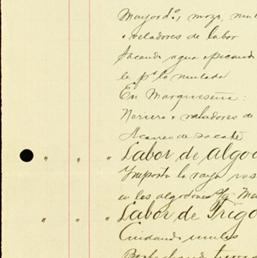 Mayordº, mozo, mul
veladores de labor
Sacando agua picando
le pª la mulada
En Marqueseña:
Herrero veladores de
Acarreo de zacate
" " " Labor de algod
Importó la raya
en los algodones
" " " Labor de Trigo
Cuidando mulas